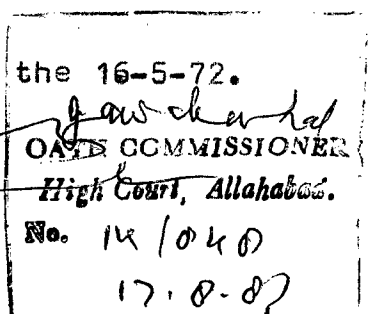 the 16-5-72.
OATH COMMISSIONER
High Court, Allahabad.
No. 14/040
17.8.87